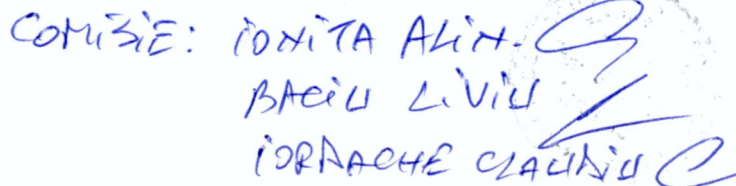 COMISIE: IONITA ALIN.
BACIU LIVIU
IORDACHE CLAUDIU